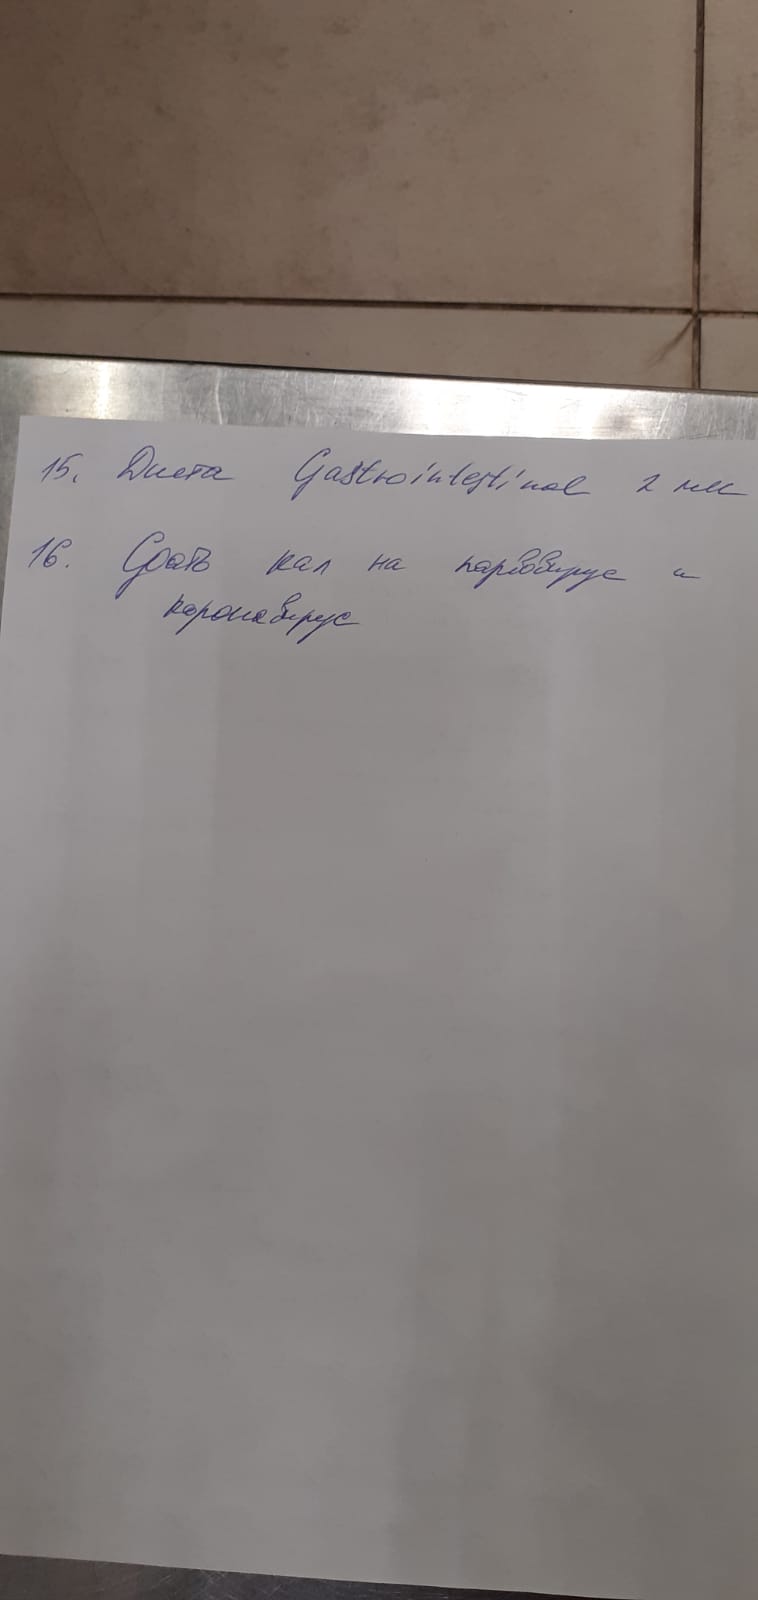 15. Диета Gastrointestinal 2 мес
16. Сдать кал на парвовирус и
коронавирус